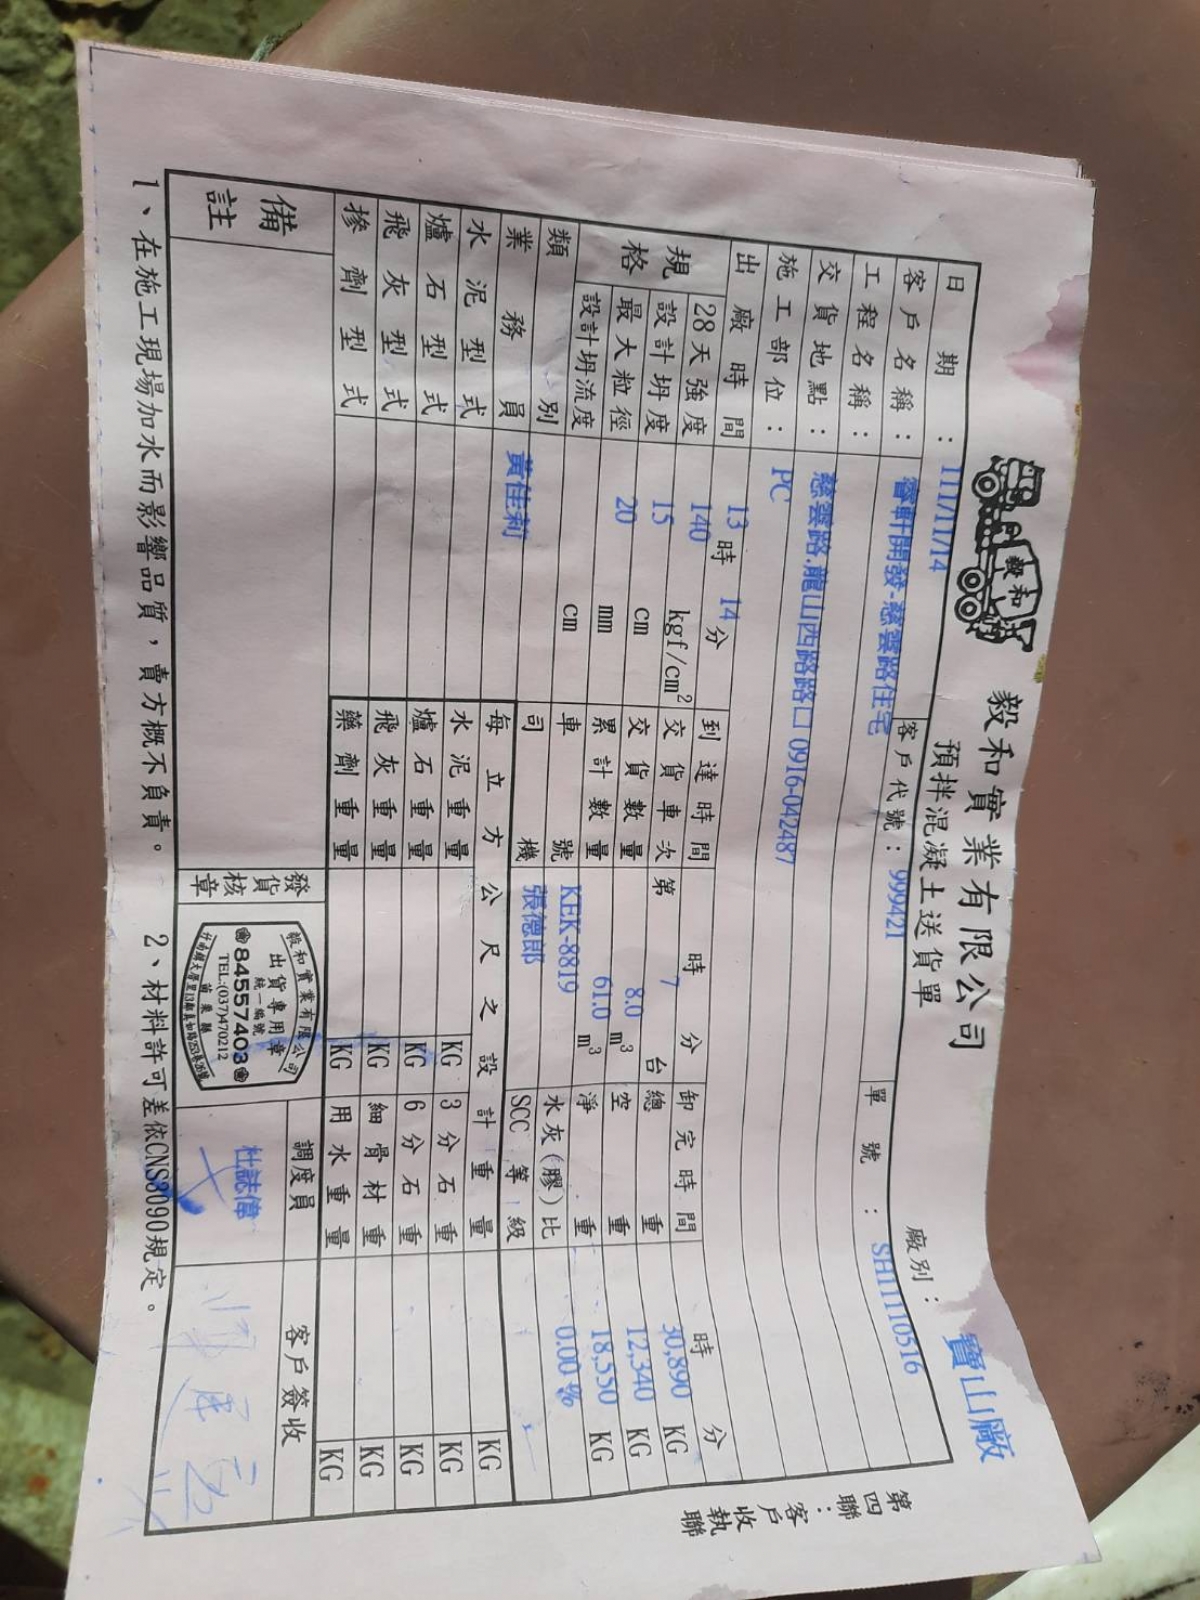 毅和
毅和實業有限公司
預拌混凝土送貨單
廠別：寶山廠
日期：111/11/14
客戶名稱：睿軒開發-慈雲路住宅 客戶代號：999421 單號：SH11110516
工程名稱：
交貨地點：慈雲路.龍山西路路口 0916-042487
施工部位：PC
出廠時間 13時14分 到達時間 時 分 卸完時間 時 分
規格 28天強度 140 kgf/cm² 交貨車次 第 7 台 總重 30,890 KG
設計坍度 15 cm 交貨數量 8.0 m³ 空重 12,340 KG
最大粒徑 20 mm 累計數量 61.0 m³ 淨重 18,550 KG
設計坍流度 cm 車號 KEK-8819 水灰(膠)比 0.00 %
類別 司機 張德郎 SCC等級
業務員 黃佳莉 每立方公尺之設計重量 KG
水泥型式 水泥重量 KG 3分石重 KG
爐石型式 爐石重量 KG 6分石重 KG
飛灰型式 飛灰重量 KG 細骨材重 KG
摻劑型式 藥劑重量 KG 用水重量 KG
備註 發貨核章 調度員 客戶簽收
毅和實業有限公司
出貨專用章
統一編號
84557403
TEL:(037)470212
苗栗縣
杜誌偉
1、在施工現場加水而影響品質，賣方概不負責。 2、材料許可差依CNS3090規定。
第四聯：客戶收執聯